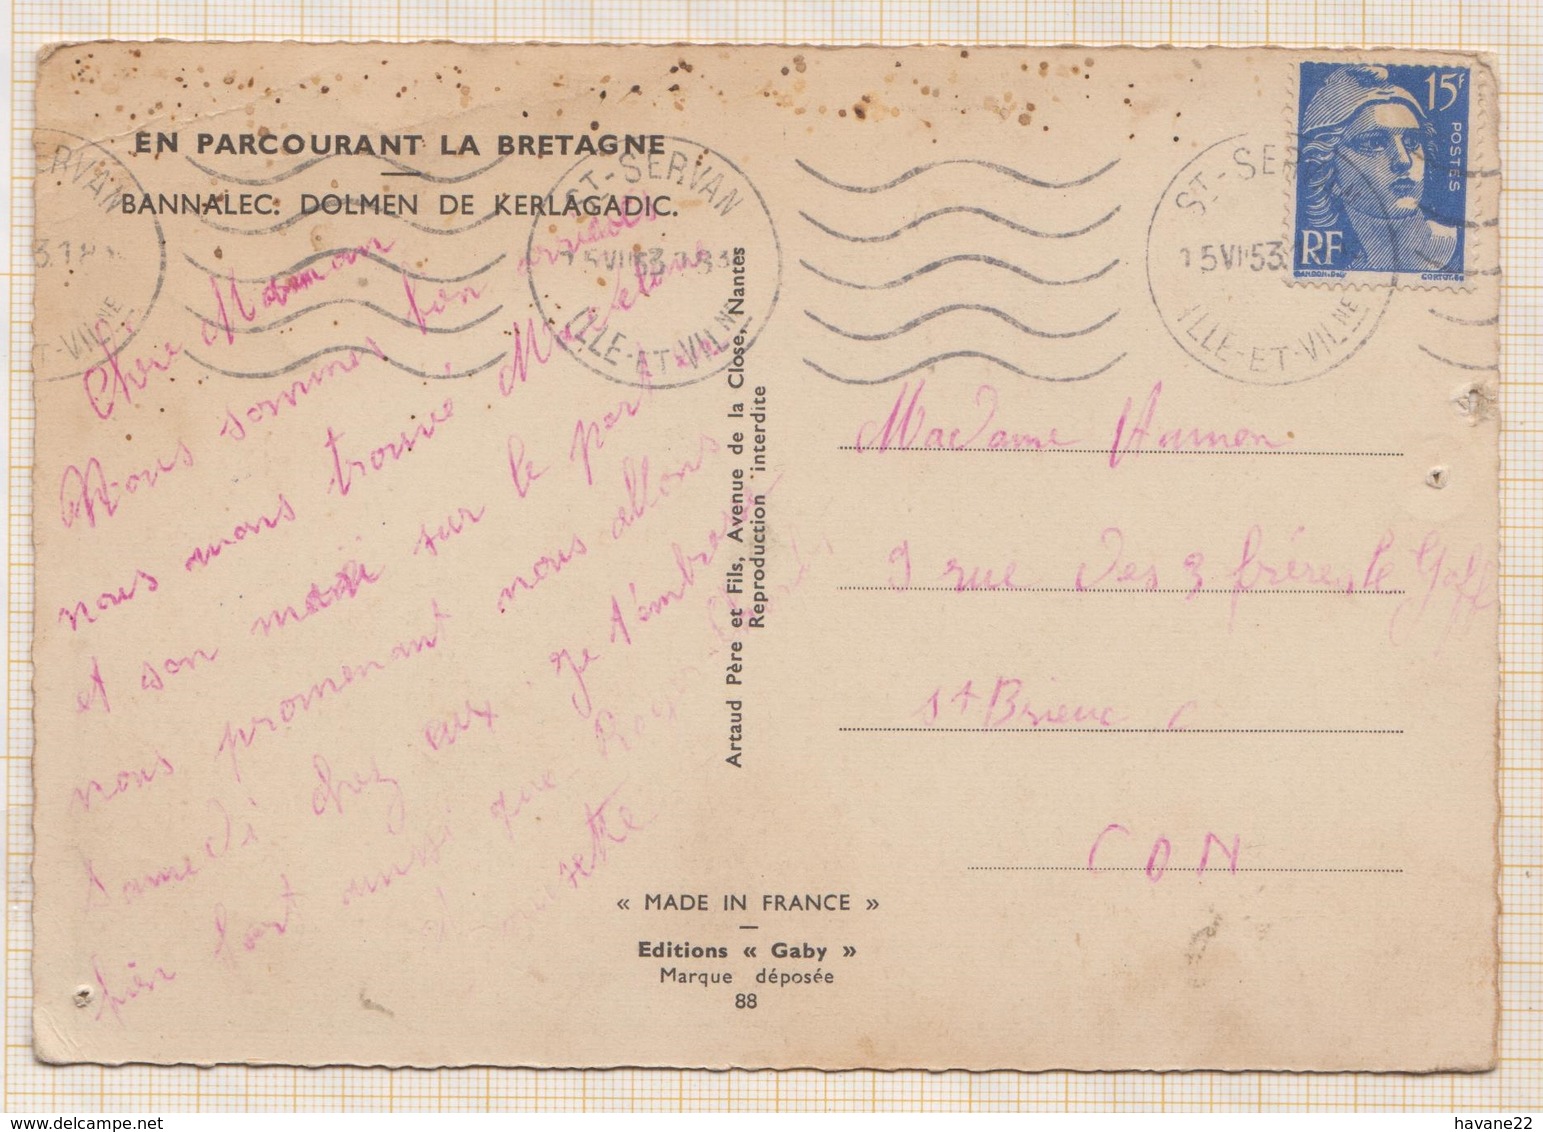 EN PARCOURANT LA BRETAGNE
BANNALEC. DOLMEN DE KERLAGADIC.
Chère Maman
Nous sommes bon arrivés
nous avons trouvé Marcelour
et son mari sur le port en
nous promenant nous allons
Samedi chez eux. Je t'embrasse
bien fort ainsi que Roger
et
Artaud Père et Fils, Avenue de la Close, Nantes
Reproduction interdite
« MADE IN FRANCE »
Editions « Gaby »
Marque déposée
88
ST-SERVAN
15 VII 53
ILLE-ET-VILNE
ST-SERVAN
15 VII 53
ILLE-ET-VILNE
RVAN
53.18
T-VILNE
15F
POSTES
RF
GANDON
CORTOT
Madame Hamon
9 rue des 3 frères le Goff
St Brieuc
CDN
havane22